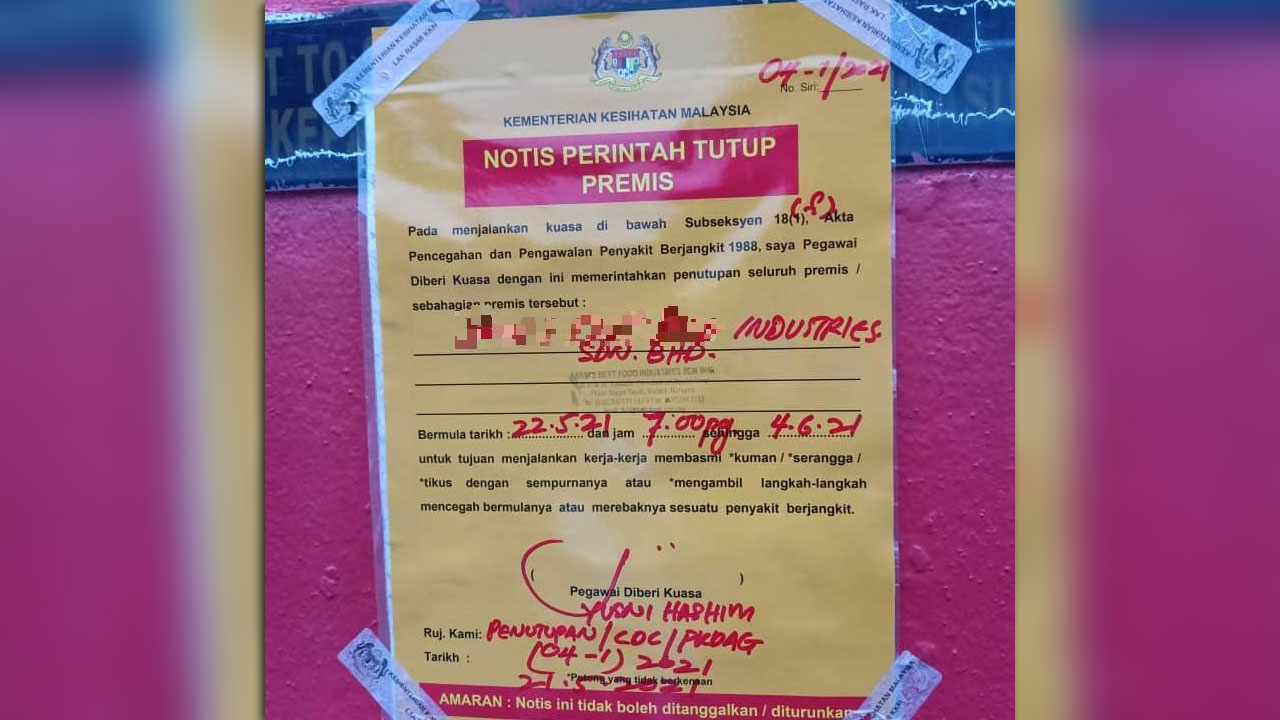 KEMENTERIAN KESIHATAN
LAK RASMI KKM
04-1/2021
No. Siri:
KEMENTERIAN KESIHATAN MALAYSIA
NOTIS PERINTAH TUTUP
PREMIS
Pada menjalankan kuasa di bawah Subseksyen 18(1), (f) Akta
Pencegahan dan Pengawalan Penyakit Berjangkit 1988, saya Pegawai
Diberi Kuasa dengan ini memerintahkan penutupan seluruh premis /
sebahagian premis tersebut :
INDUSTRIES
SDN. BHD.
BEST FOOD INDUSTRIES SDN BHD
Bermula tarikh : 22.5.21 dan jam 7.00pg sehingga 4.6.21
untuk tujuan menjalankan kerja-kerja membasmi *kuman / *serangga /
*tikus dengan sempurnanya atau *mengambil langkah-langkah
mencegah bermulanya atau merebaknya sesuatu penyakit berjangkit.
( )
Pegawai Diberi Kuasa
YUSNI HASHIM
Ruj. Kami: PENUTUPAN/CDC/PKDAG
(04-1) 2021
Tarikh : 21.5.2021
*Potong yang tidak berkenaan
AMARAN : Notis ini tidak boleh ditanggalkan / diturunkan